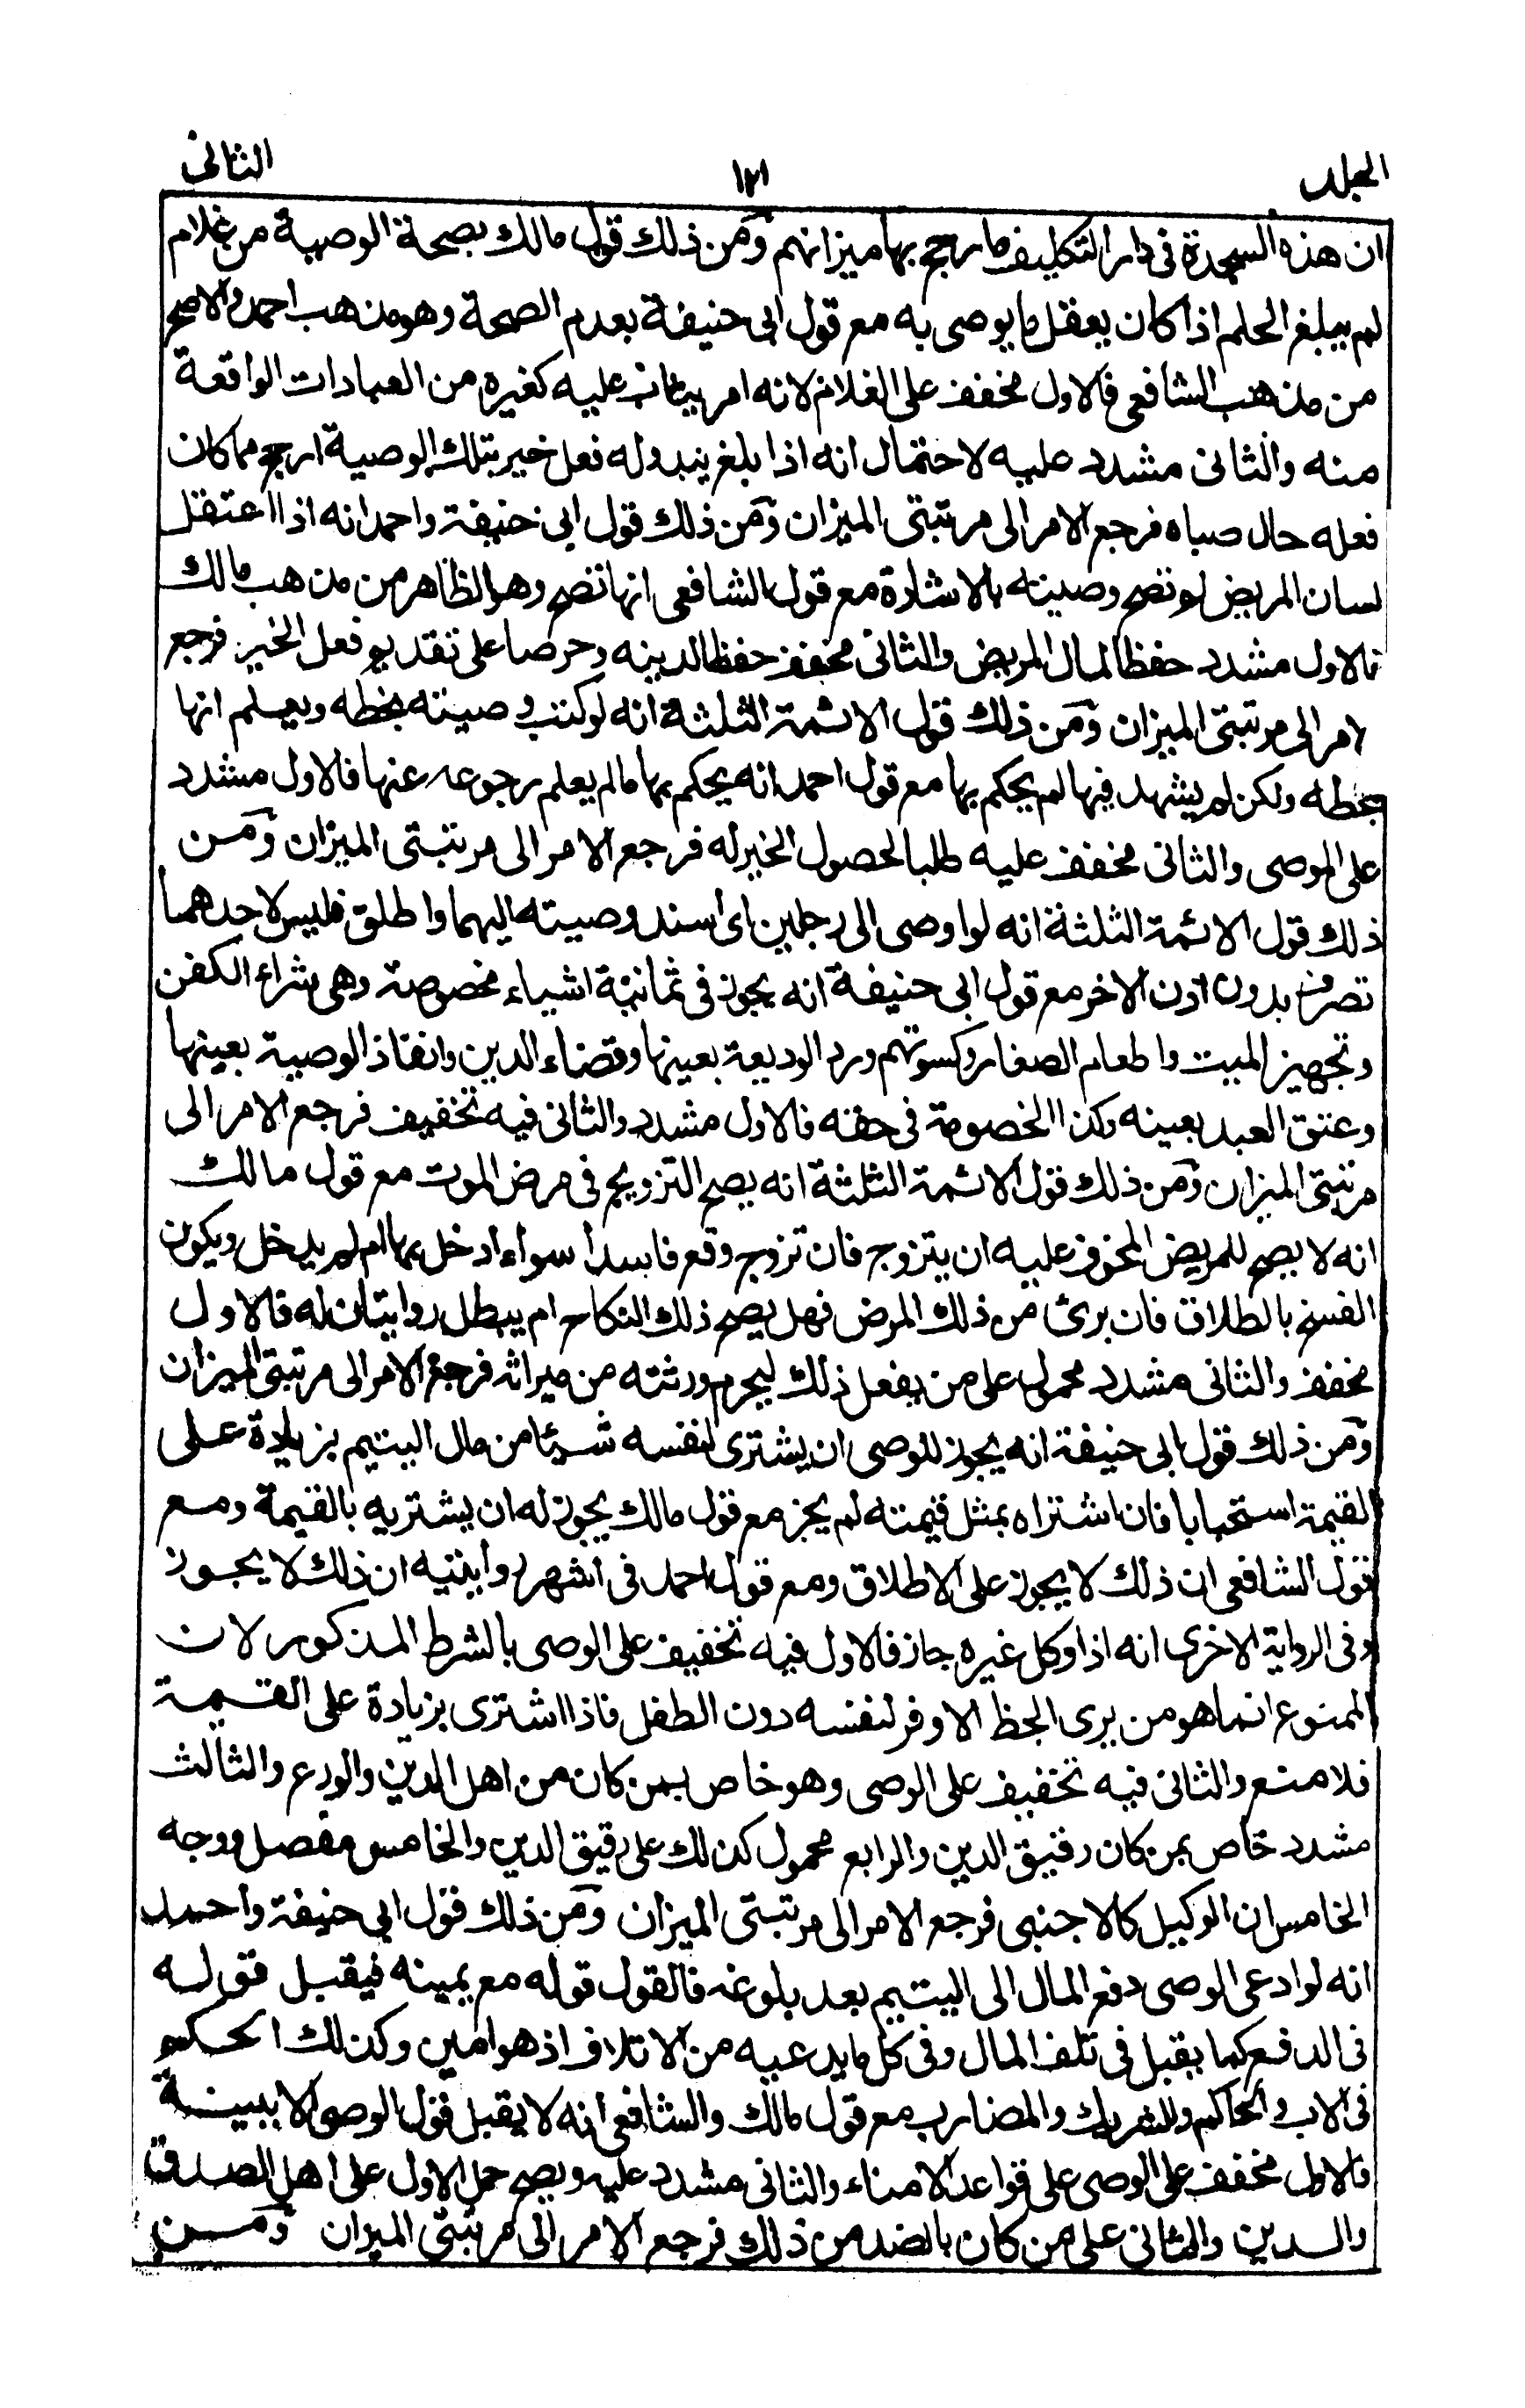 المجلد ١٢١ الثانى
ان هذه السجدة فى دار التكليف ما رجح بها ميزانهم ومن ذلك قول مالك بصحة الوصية من غلام
لم يبلغ الحلم اذا كان يعقل ما يوصى به مع قول ابى حنيفة بعدم الصحة وهو مذهب احمد والاصح
من مذهب الشافعى فالاول مخفف على الغلام لانه امر يثاب عليه كغيره من العبادات الواقعة
منه والثانى مشدد عليه لاحتمال انه اذا بلغ يبدو له فعل خير بتلك الوصية ارجح مما كان
فعله حال صباه فرجع الامر الى مرتبتى الميزان ومن ذلك قول ابى حنيفة واحمد انه اذا اعتقل
لسان المريض لم تصح وصيته بالاشارة مع قول الشافعى انها تصح وهو الظاهر من مذهب مالك
فالاول مشدد حفظا لمال المريض والثانى مخفف حفظا لدينه وحرصا على تقديم فعل الخير فرجع
لامر الى مرتبتى الميزان ومن ذلك قول الائمة الثلثة انه لو كتب وصيته بخطه ويعلم انها
بخطه ولكن لم يشهد فيها لم يحكم بها مع قول احمد انه يحكم بها ما لم يعلم رجوعه عنها فالاول مشدد
على الموصى والثانى مخفف عليه طلبا لحصول الخير له فرجع الامر الى مرتبتى الميزان ومن
ذلك قول الائمة الثلثة انه لو اوصى الى رجلين اى اسند وصيته اليهما واطلق فليس لاحدهما
تصرف بدون اذن الاخر مع قول ابى حنيفة انه يجوز فى ثمانية اشياء مخصوصة وهى شراء الكفن
وتجهيز الميت واطعام الصغار وكسوتهم ورد الوديعة بعينها وقضاء الدين وانفاذ الوصية بعينها
وعتق العبد بعينه وكذا الخصومة فى حقه فالاول مشدد والثانى فيه تخفيف فرجع الامر الى
مرتبتى الميزان ومن ذلك قول الائمة الثلثة انه يصح التزويج فى مرض الموت مع قول مالك
انه لا يصح للمريض المخوف عليه ان يتزوج فان تزوج وقع فاسدا سواء ادخل بها ام لم يدخل ويكون
الفسخ بالطلاق فان برئ من ذلك المرض فهل يصح ذلك النكاح ام يبطل روايتان له فالاول
مخفف والثانى مشدد محمول على من يفعل ذلك ليحرم ورثته من ميراثه فرجع الامر الى مرتبتى الميزان
ومن ذلك قول ابى حنيفة انه يجوز للوصى ان يشترى لنفسه شيئا من مال اليتيم بزيادة على
القيمة استحبابا فان اشتراه بمثل قيمته لم يجز مع قول مالك يجوز له ان يشتريه بالقيمة ومع
قول الشافعى ان ذلك لا يجوز على الاطلاق ومع قول احمد فى اشهر روايتيه ان ذلك لا يجوز
وفى الرواية الاخرى انه اذا وكل غيره جاز فالاول فيه تخفيف على الوصى بالشرط المذكور لان
الممنوع انما هو من يرى الحظ الاوفر لنفسه دون الطفل فاذا اشترى بزيادة على القيمة
فلا منع والثانى فيه تخفيف على الوصى وهو خاص بمن كان من اهل الدين والورع والثالث
مشدد خاص بمن كان رقيق الدين والرابع محمول كذلك على رقيق الدين والخامس مفصل ووجه
الخامس ان الوكيل كالاجنبى فرجع الامر الى مرتبتى الميزان ومن ذلك قول ابى حنيفة واحمد
انه لو ادعى الوصى دفع المال الى اليتيم بعد بلوغه فالقول قوله مع يمينه فيقبل قوله
فى الدفع كما يقبل فى تلف المال وفى كل ما يدعيه من الاتلاف اذ هو امين وكذلك الحكم
فى الاب والحاكم والشريك والمضارب مع قول مالك والشافعى انه لا يقبل قول الوصى الا ببينة
فالاول مخفف على الوصى على قواعد الامناء والثانى مشدد عليه ويصح حمل الاول على اهل الصدق
والدين والثانى على من كان بالضد من ذلك فرجع الامر الى مرتبتى الميزان ومن